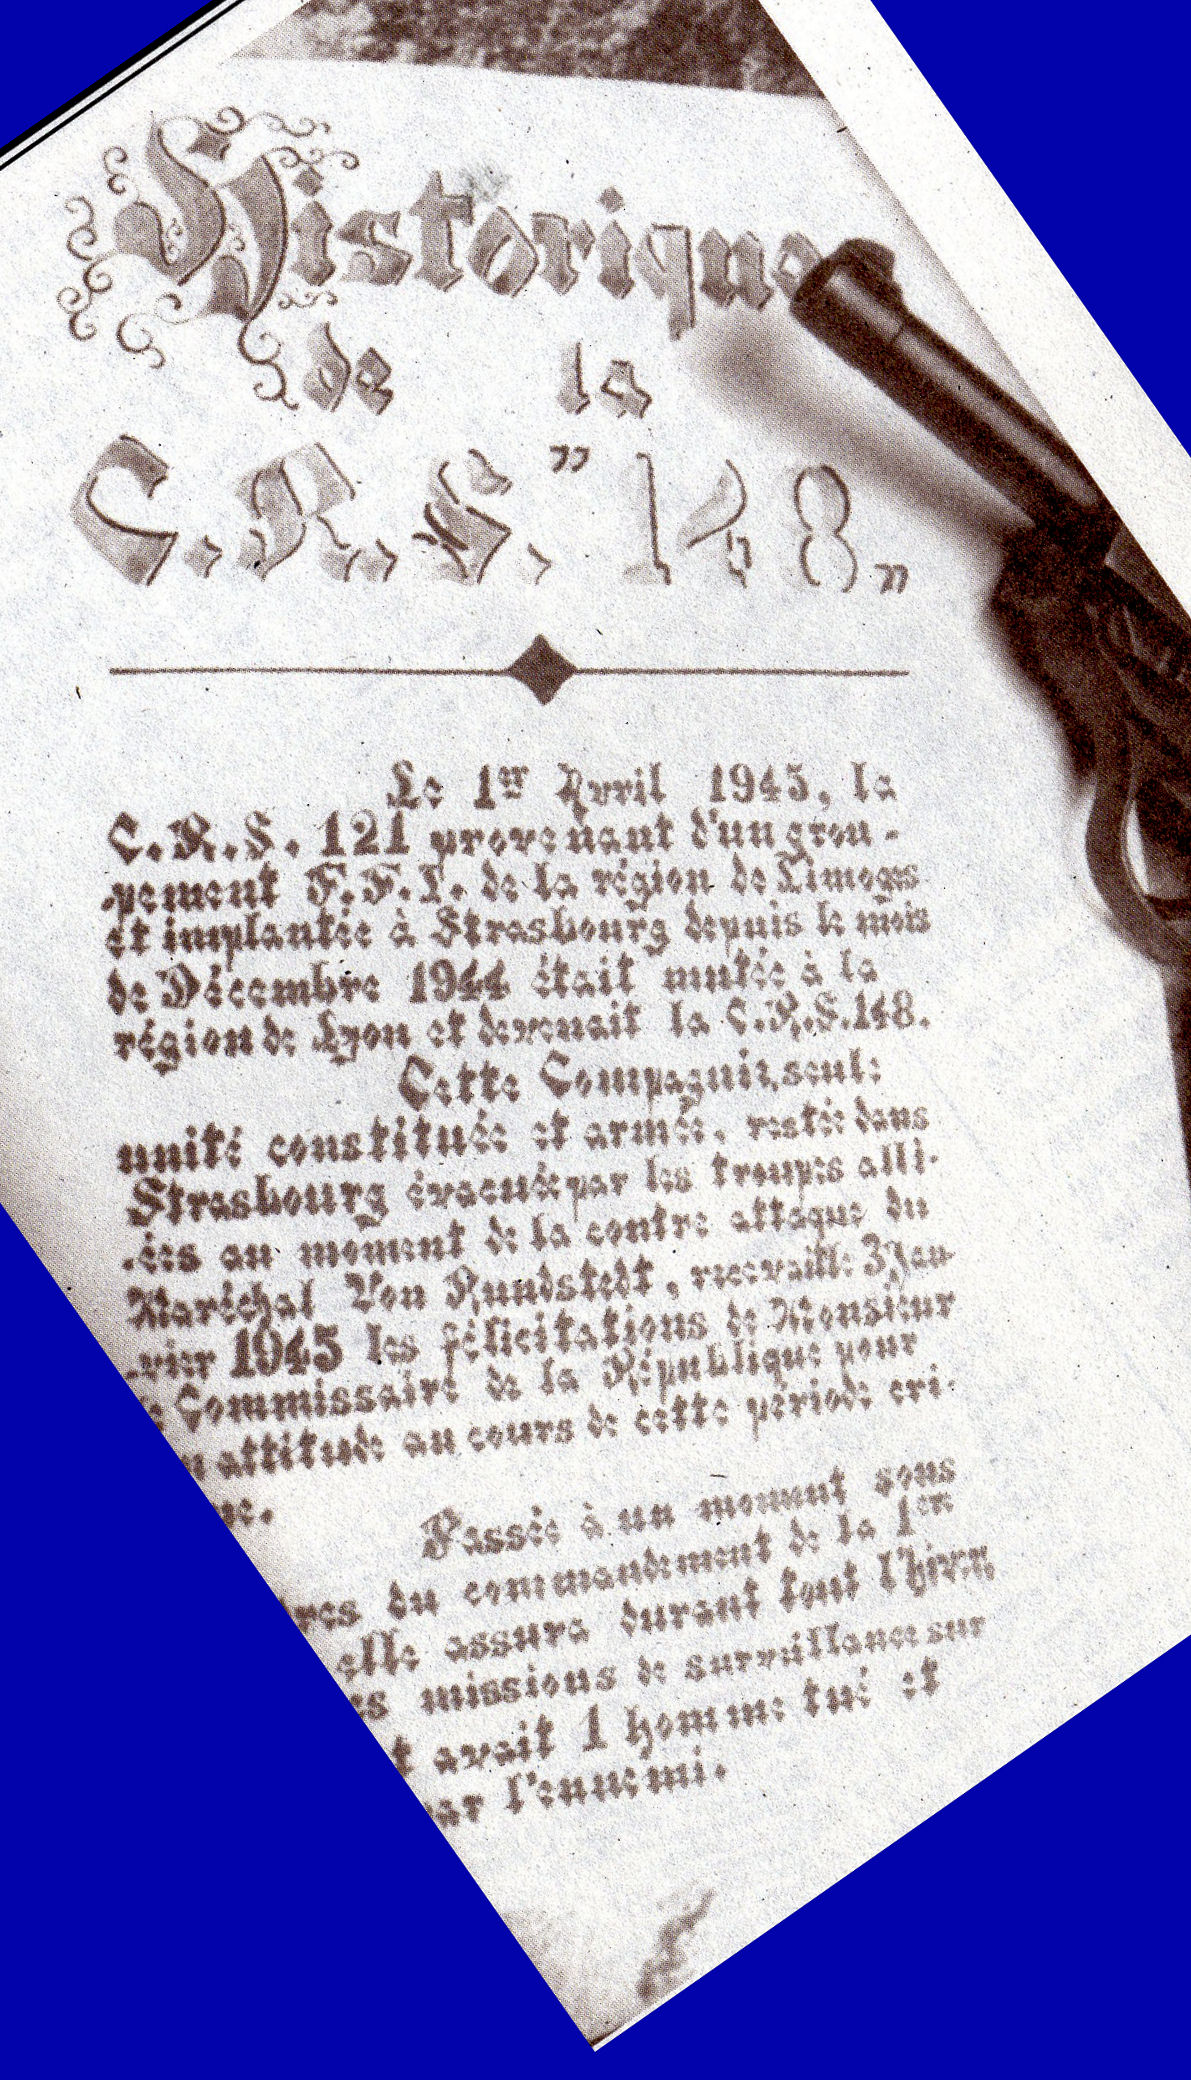 Historique
de la
C.R.S. "148"
Le 1er Avril 1945, la
C.R.S. 121 provenant d'un grou-
-pement F.F.I. de la région de Limoges
et implantée à Strasbourg depuis le mois
de Décembre 1944 était mutée à la
région de Lyon et devenait la C.R.S.148.
Cette Compagnie, seule
unité constituée et armée, restée dans
Strasbourg évacuée par les troupes alli-
-ées au moment de la contre attaque du
Maréchal Von Rundstedt, recevait le 3 Jan-
-vier 1945 les félicitations de Monsieur
e Commissaire de la République pour
n attitude au cours de cette période cri-
ue.
Passée à un moment sous
res du commandement de la 1ere
elle assura durant tout l'hiver,
es missions de surveillance sur
t avait 1 homme tué et
ar l'ennemi.